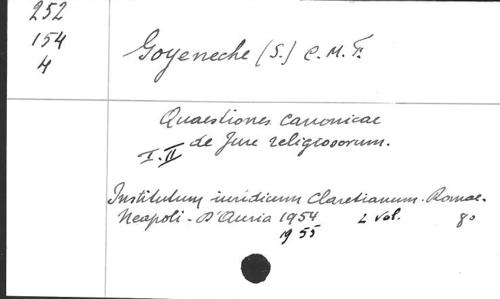 252
154
4
Goyeneche (S.) C. M. F.
Quaestiones canonicae
de Jure religiosorum.
I. II
Institutum iuridicum Claretianum. Romae.
Neapoli - D'Auria 1954 2 vol. 8º
1955